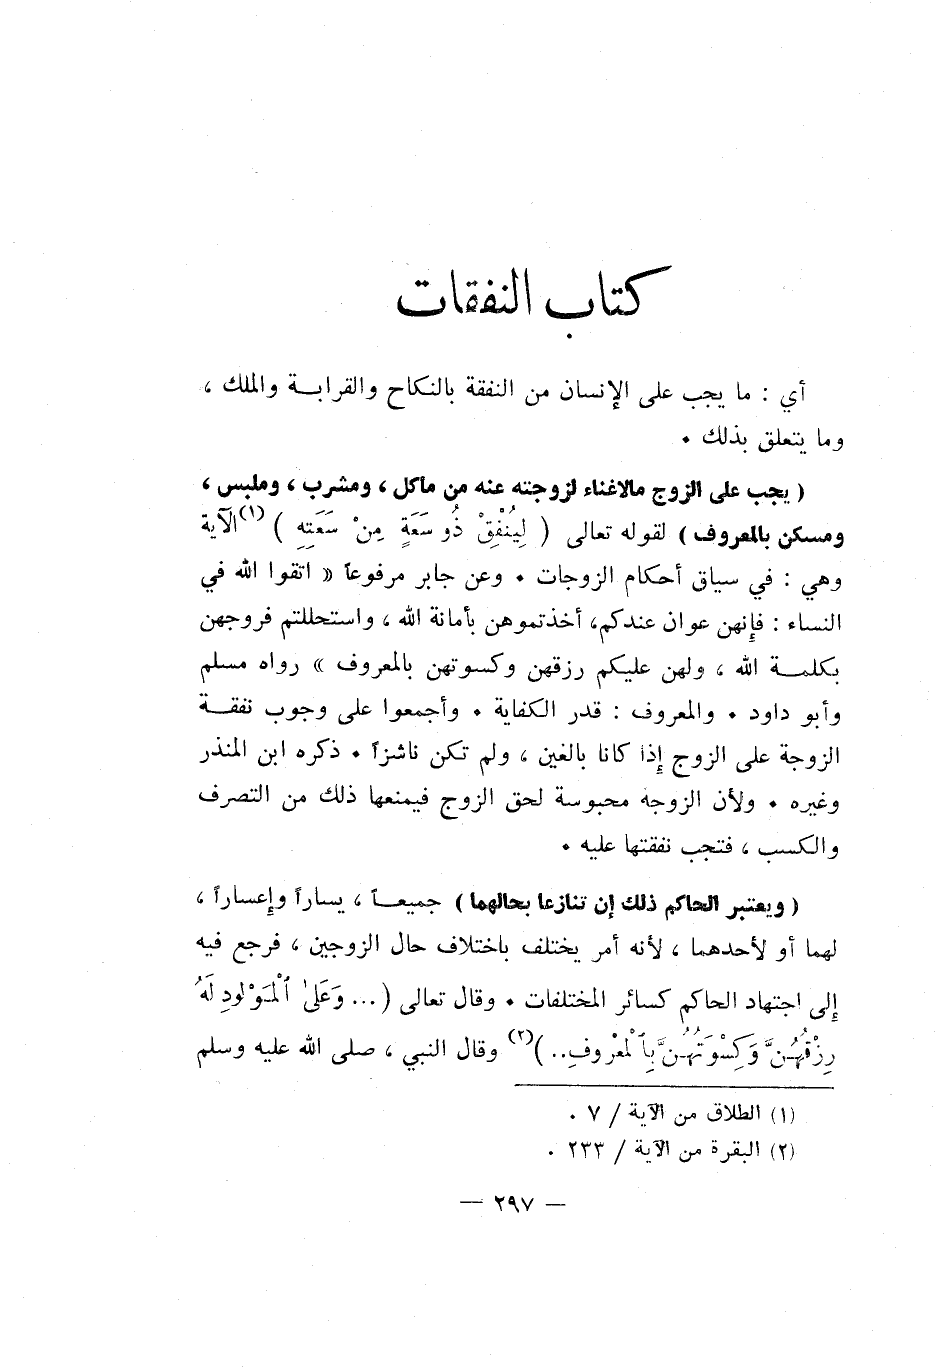 كتاب النفقات
أي : ما يجب على الإنسان من النفقة بالنكاح والقرابة والملك ،
وما يتعلق بذلك .
( يجب على الزوج مالاغناء لزوجته عنه من ماكل ، ومشرب ، وملبس ،
ومسكن بالمعروف ) لقوله تعالى ( لِيُنْفِقْ ذُو سَعَةٍ مِنْ سَعَتِهِ ) (١) الآية
وهي : في سياق أحكام الزوجات . وعن جابر مرفوعاً « اتقوا الله في
النساء : فإنهن عوان عندكم، أخذتموهن بأمانة الله ، واستحللتم فروجهن
بكلمة الله ، ولهن عليكم رزقهن وكسوتهن بالمعروف » رواه مسلم
وأبو داود . والمعروف : قدر الكفاية . وأجمعوا على وجوب نفقة
الزوجة على الزوج إذا كانا بالغين ، ولم تكن ناشزاً . ذكره ابن المنذر
وغيره . ولأن الزوجه محبوسة لحق الزوج فيمنعها ذلك من التصرف
والكسب ، فتجب نفقتها عليه .
( ويعتبر الحاكم ذلك إن تنازعا بحالهما ) جميعاً ، يساراً وإعساراً ،
لهما أو لأحدهما ، لأنه أمر يختلف باختلاف حال الزوجين ، فرجع فيه
إلى اجتهاد الحاكم كسائر المختلفات . وقال تعالى ( ... وَعَلَىٰ ٱلْمَوْلُودِ لَهُ
رِزْقُهُنَّ وَكِسْوَتُهُنَّ بِٱلْمَعْرُوفِ .. ) (٢) وقال النبي ، صلى الله عليه وسلم
(١) الطلاق من الآية / ٧ .
(٢) البقرة من الآية / ٢٣٣ .
— ٢٩٧ —